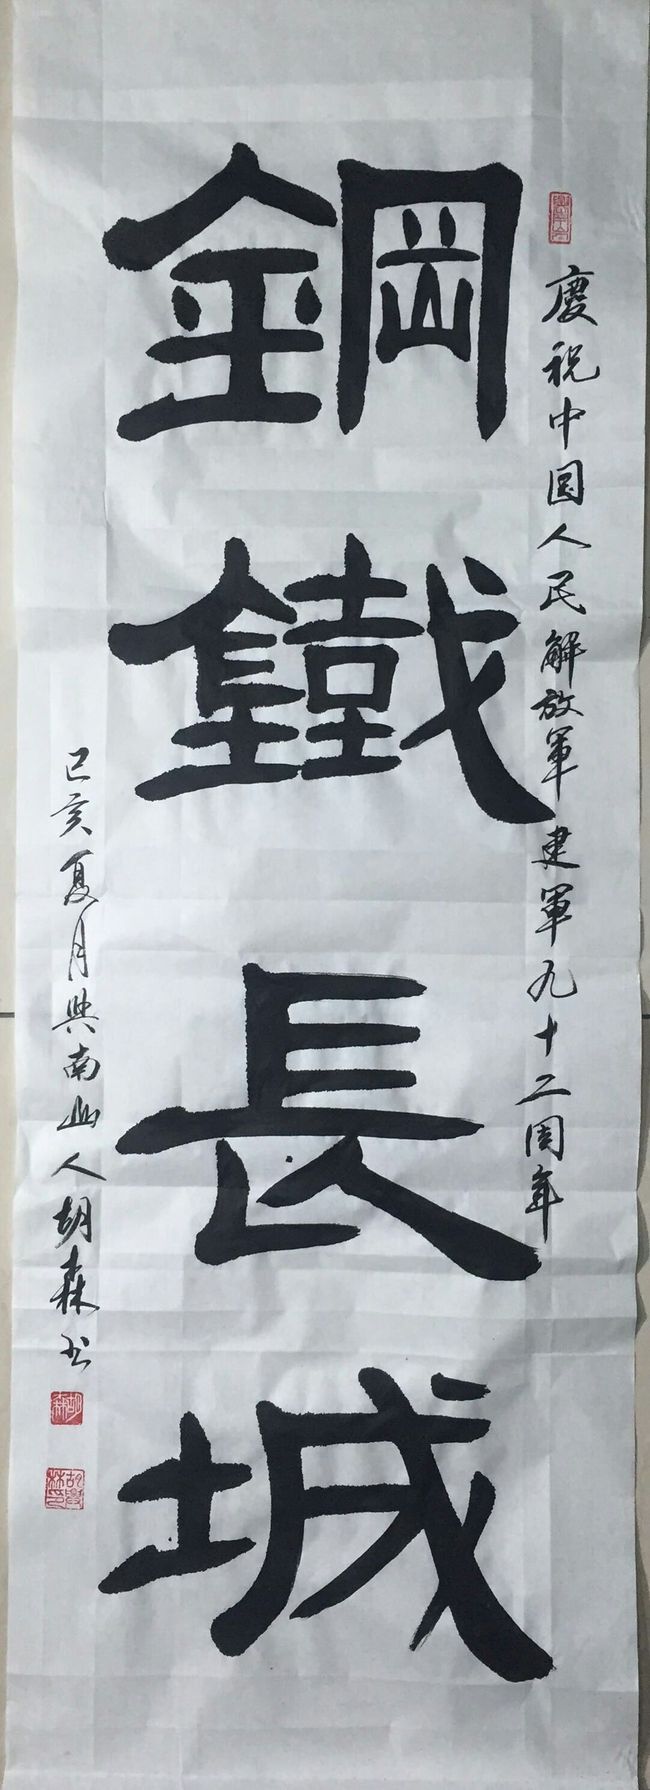 慶祝中国人民解放軍建軍九十二周年
鋼鐵長城
己亥夏月興南山人胡森书